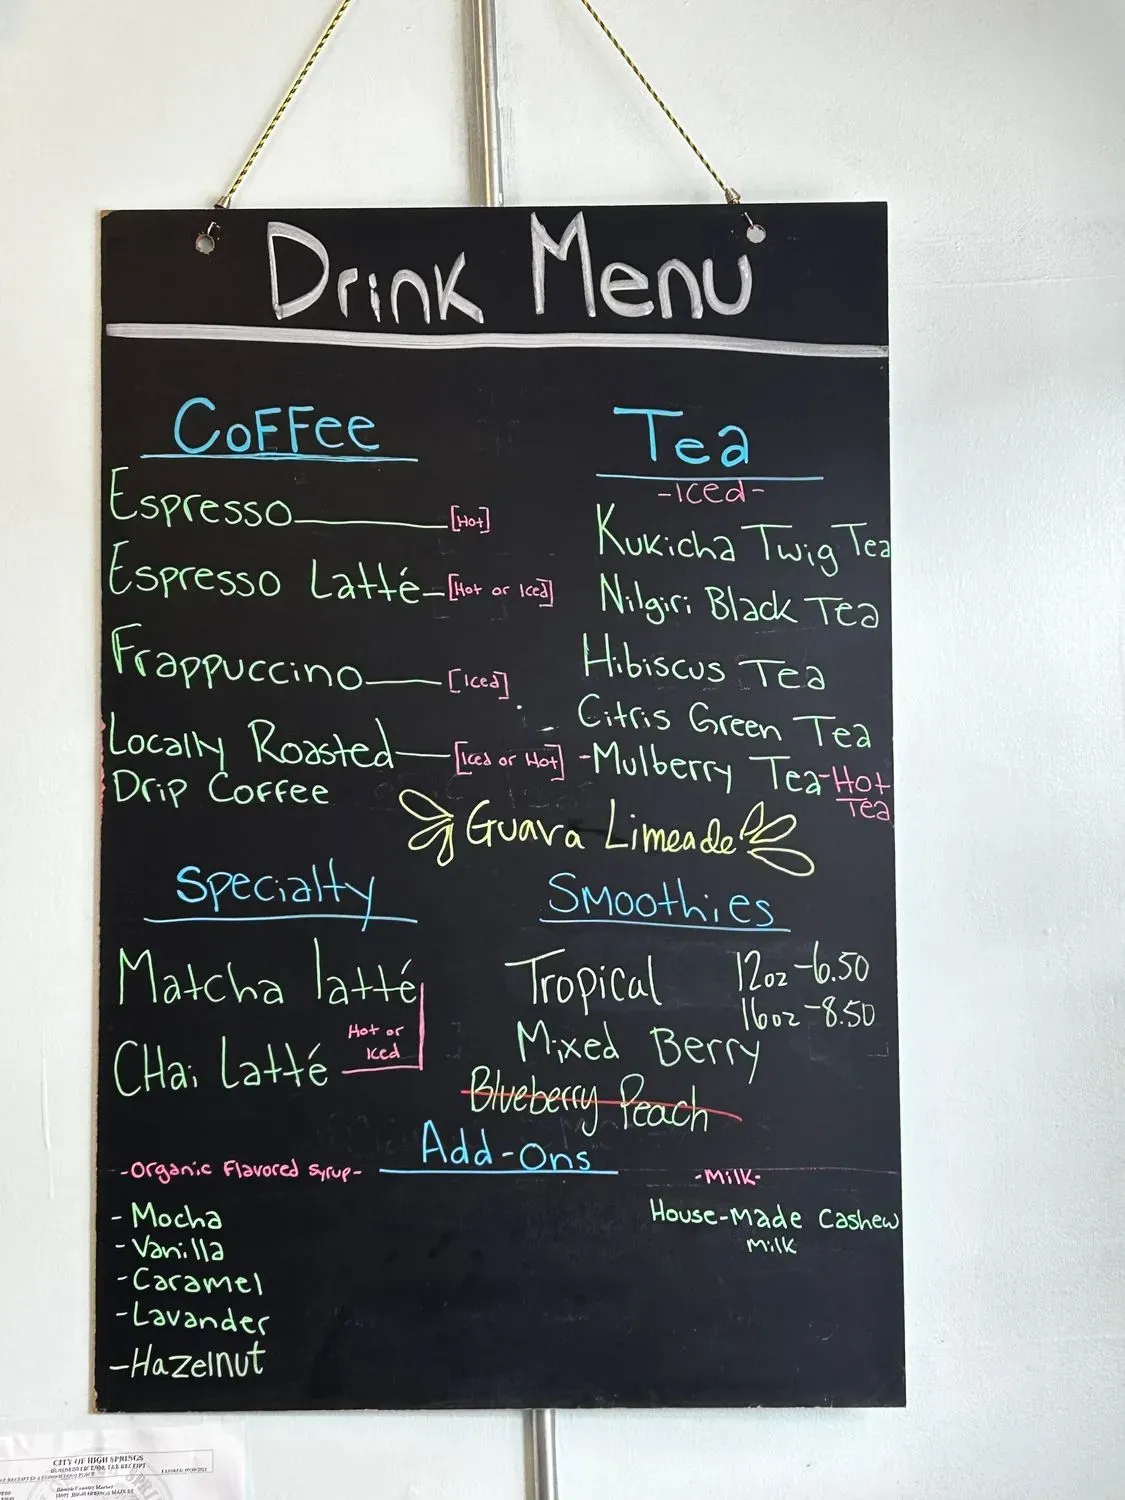 Drink Menu
Coffee
Espresso [Hot]
Espresso Latté [Hot or Iced]
Frappuccino [Iced]
Locally Roasted [Iced or Hot]
Drip Coffee
Tea
-Iced-
Kukicha Twig Tea
Nilgiri Black Tea
Hibiscus Tea
Citris Green Tea
-Mulberry Tea-Hot
Tea
Guava Limeade
Specialty
Matcha latté
Hot or
Iced
CHai Latté
Smoothies
Tropical 12oz-6.50
16oz-8.50
Mixed Berry
Blueberry Peach
Add-Ons
-Organic Flavored Syrup-
- Mocha
- Vanilla
- Caramel
- Lavander
- Hazelnut
-Milk-
House-Made Cashew
Milk
CITY OF HIGH SPRINGS